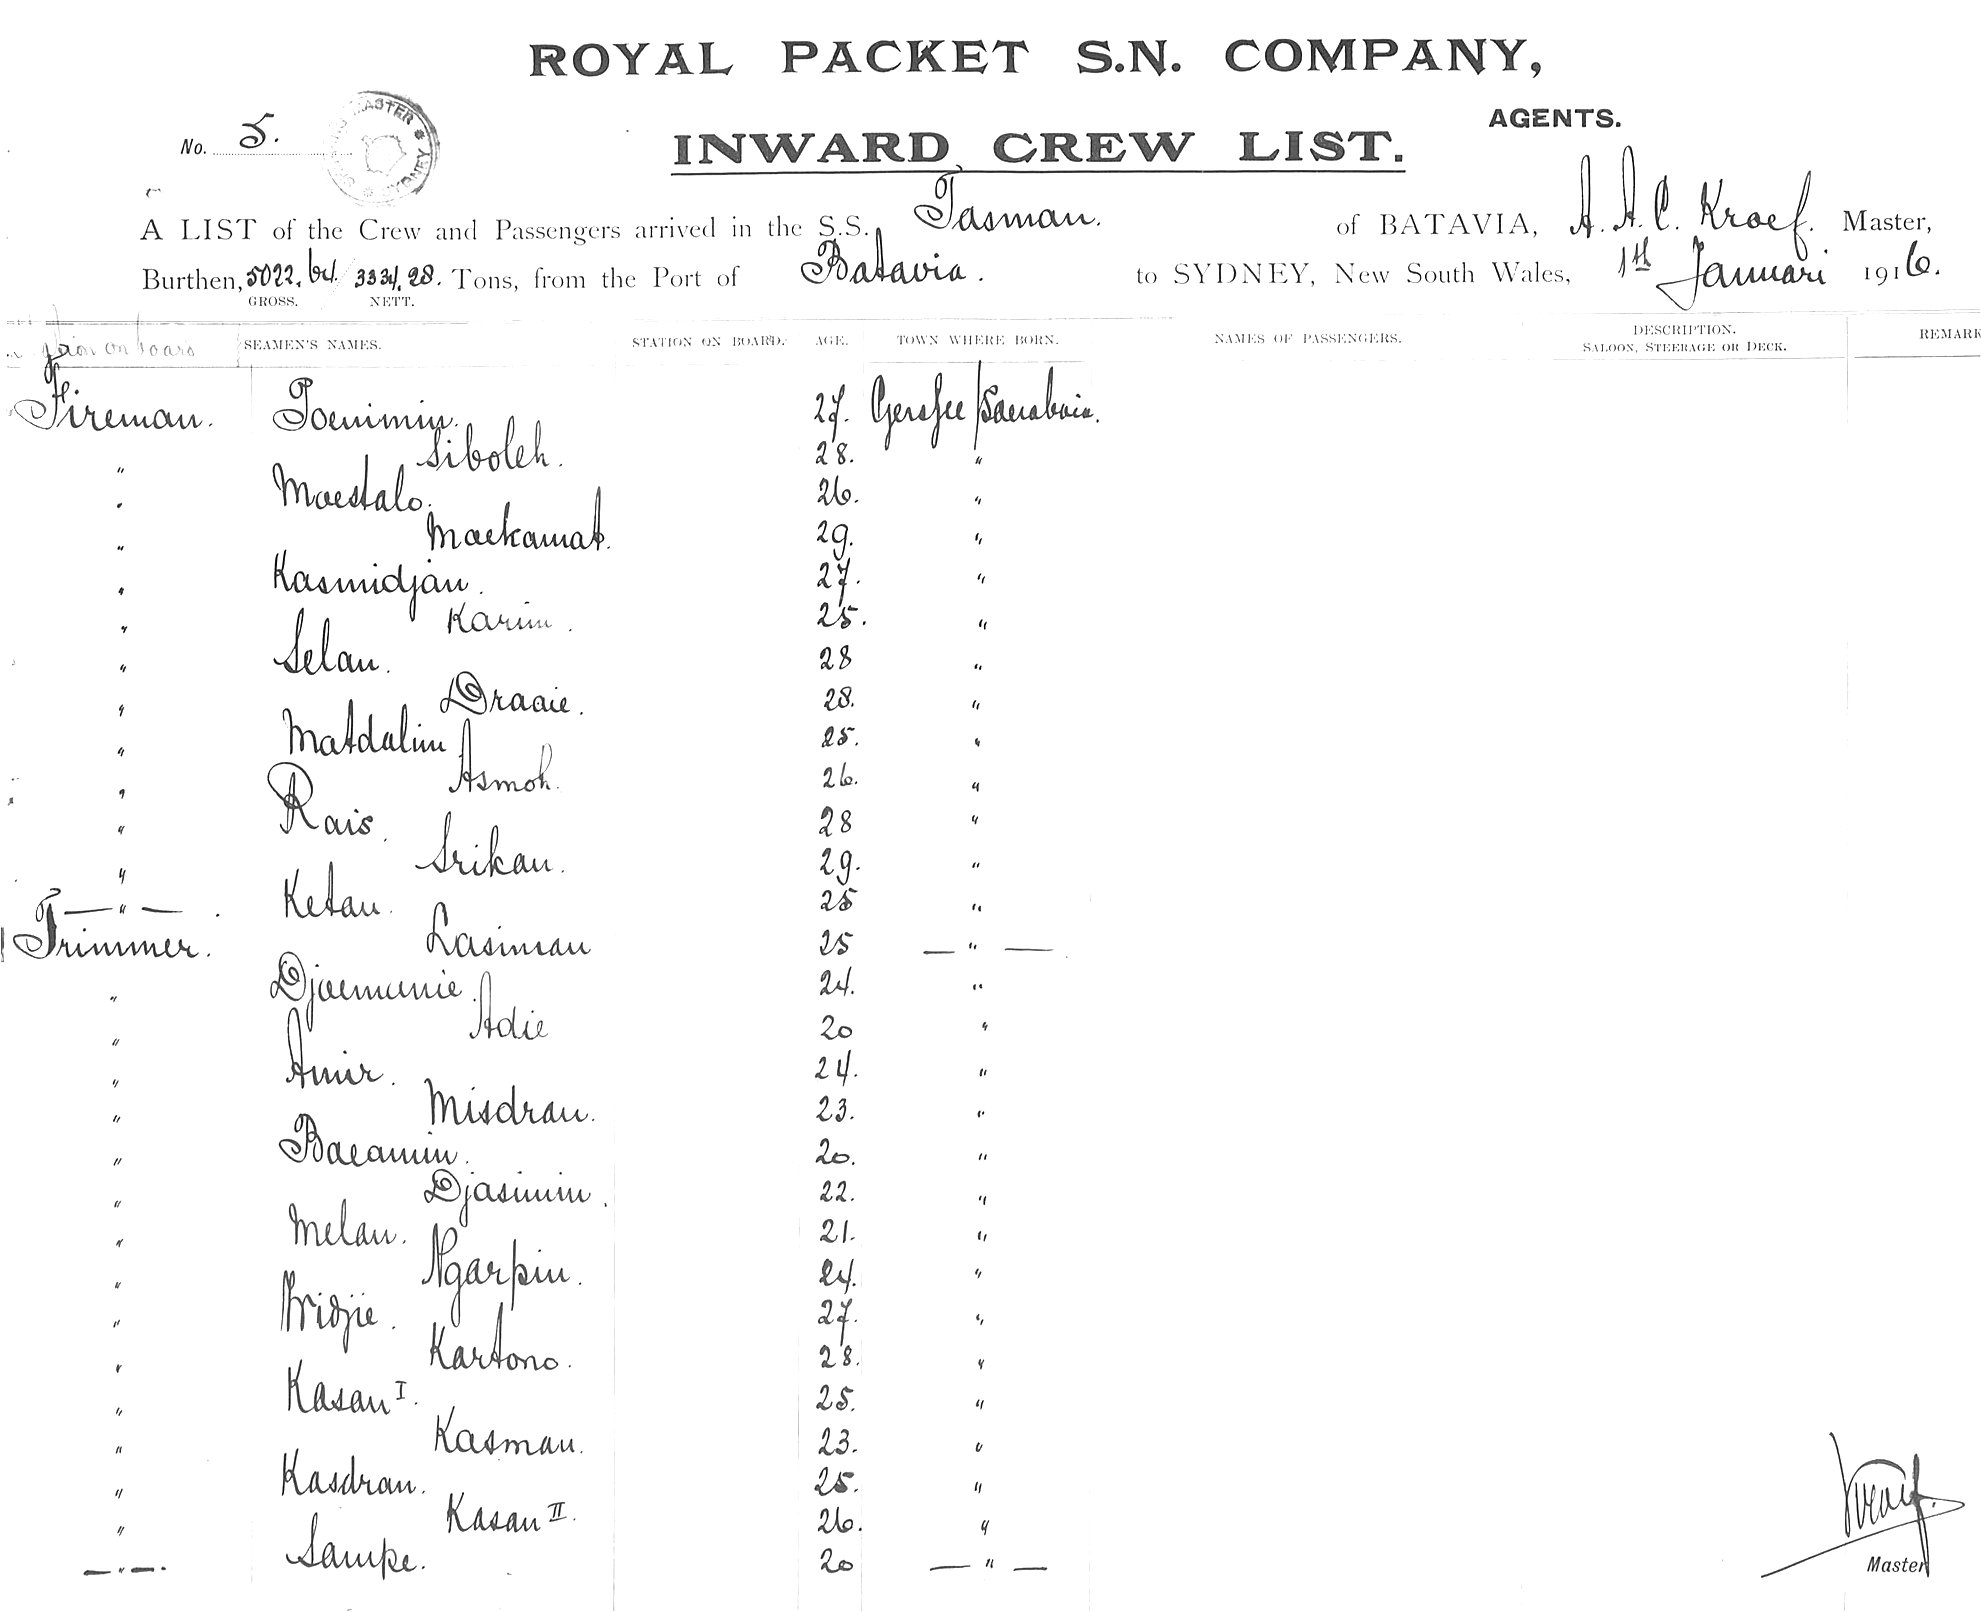 ROYAL PACKET S.N. COMPANY,
AGENTS.
No. 5.
INWARD CREW LIST.
A LIST of the Crew and Passengers arrived in the S.S. Tasman. of BATAVIA, A. A. C. Kroef. Master,
Burthen, 5022.64 / 3334.28. Tons, from the Port of Batavia. to SYDNEY, New South Wales, 1th Januari 1916.
GROSS. NETT.
on board SEAMEN'S NAMES. STATION ON BOARD. AGE. TOWN WHERE BORN. NAMES OF PASSENGERS. DESCRIPTION. SALOON, STEERAGE OR DECK. REMARK
Fireman. Toenimin. 27. Gersjee / Soerabaia.
" Siboleh. 28. "
" Moestalo. 26. "
" Moekamat. 29. "
" Kasmidjan. 27. "
" Karim. 25. "
" Selan. 28 "
" Draaie. 28. "
" Matdalim 25. "
" Asmoh. 26. "
" Rais. 28 "
" Srikan. 29. "
— " — . Ketan. 25 "
Trimmer. Lasiman 25 — " — .
" Djoemunie. 24. "
" Adie 20 "
" Amir. 24. "
" Misdran. 23. "
" Baeamin. 20. "
" Djasimin. 22. "
" Melan. 21. "
" Ngarpin. 24. "
" Wridjie. 27. "
" Kartono. 28. "
" Kasan I. 25. "
" Kasman. 23. "
" Kasdran. 25. "
" Kasan II. 26. "
— " — . Sampe. 20 — " —
Kroef.
Master